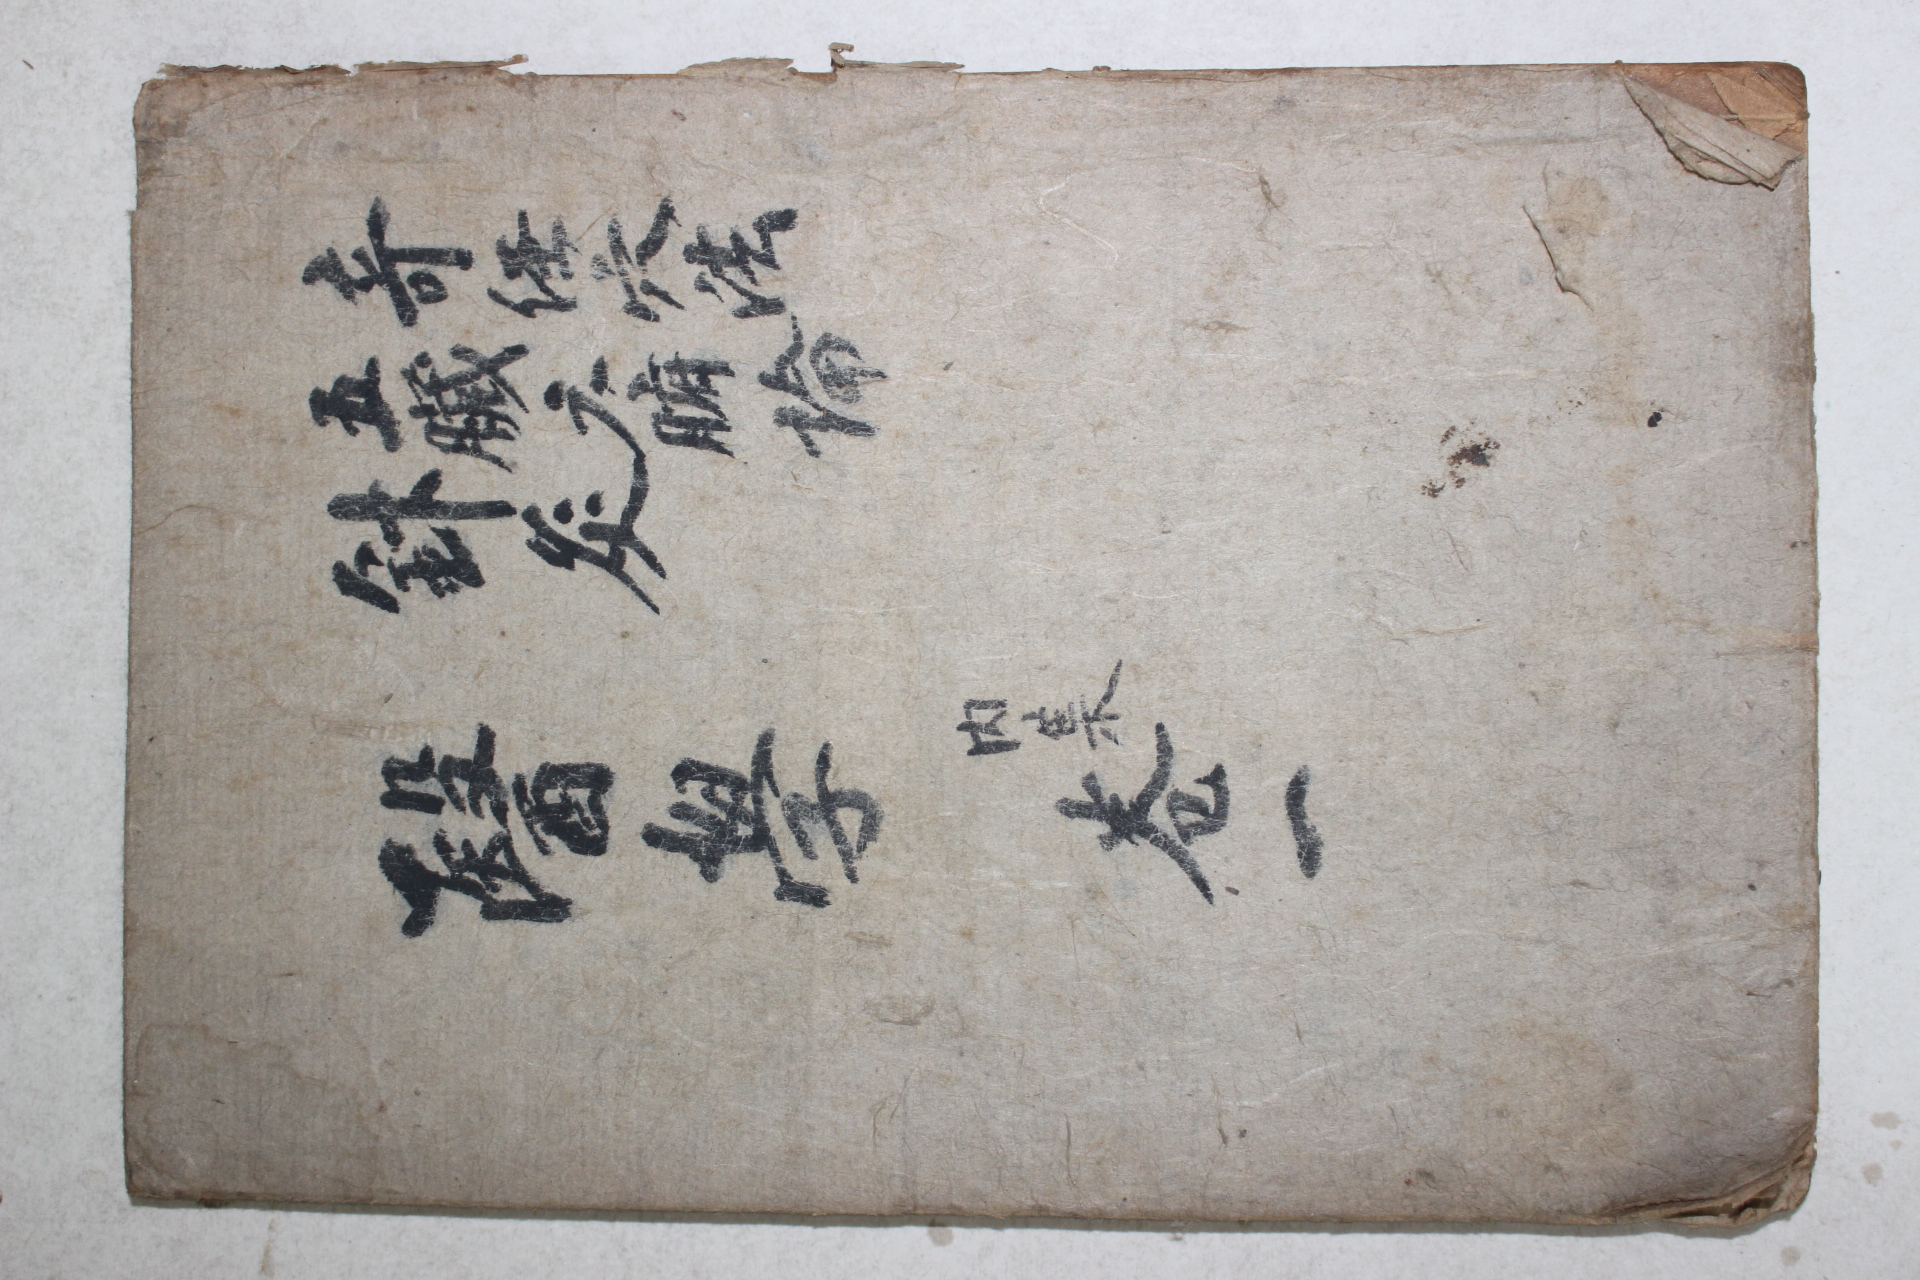 奇經穴法
五臟六腑論
針灸
醫學內集卷一